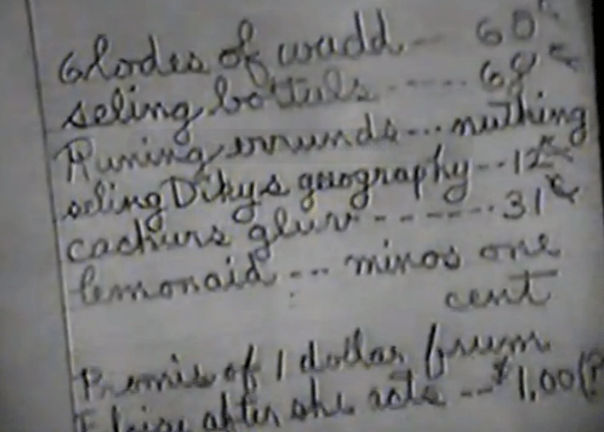 6 lodes of wudd --- 60¢
seling bottuls ----- 68¢
Runing errunds... nuthing
seling Dikys geography -- 12¢
cachurs gluv ------- 31¢
lemonaid ... minos one
cent
Promis of 1 dollar frum
after she acts --- $1.00(?